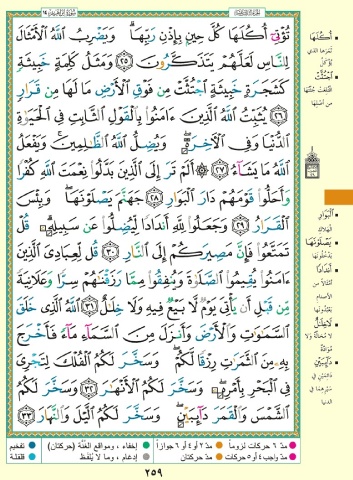 سُورَةُ إِبْرَاهِيم ١٤
تُؤْتِىٓ أُكُلَهَا كُلَّ حِينٍۭ بِإِذْنِ رَبِّهَا ۗ وَيَضْرِبُ ٱللَّهُ ٱلْأَمْثَالَ
لِلنَّاسِ لَعَلَّهُمْ يَتَذَكَّرُونَ ٢٥ وَمَثَلُ كَلِمَةٍ خَبِيثَةٍ
كَشَجَرَةٍ خَبِيثَةٍ ٱجْتُثَّتْ مِن فَوْقِ ٱلْأَرْضِ مَا لَهَا مِن قَرَارٍ
٢٦ يُثَبِّتُ ٱللَّهُ ٱلَّذِينَ ءَامَنُوا۟ بِٱلْقَوْلِ ٱلثَّابِتِ فِى ٱلْحَيَوٰةِ
ٱلدُّنْيَا وَفِى ٱلْءَاخِرَةِ ۖ وَيُضِلُّ ٱللَّهُ ٱلظَّٰلِمِينَ ۚ وَيَفْعَلُ
ٱللَّهُ مَا يَشَآءُ ٢٧ ۞ أَلَمْ تَرَ إِلَى ٱلَّذِينَ بَدَّلُوا۟ نِعْمَتَ ٱللَّهِ كُفْرًا
وَأَحَلُّوا۟ قَوْمَهُمْ دَارَ ٱلْبَوَارِ ٢٨ جَهَنَّمَ يَصْلَوْنَهَا ۖ وَبِئْسَ
ٱلْقَرَارُ ٢٩ وَجَعَلُوا۟ لِلَّهِ أَندَادًا لِّيُضِلُّوا۟ عَن سَبِيلِهِۦ ۗ قُلْ
تَمَتَّعُوا۟ فَإِنَّ مَصِيرَكُمْ إِلَى ٱلنَّارِ ٣٠ قُل لِّعِبَادِىَ ٱلَّذِينَ
ءَامَنُوا۟ يُقِيمُوا۟ ٱلصَّلَوٰةَ وَيُنفِقُوا۟ مِمَّا رَزَقْنَٰهُمْ سِرًّا وَعَلَانِيَةً
مِّن قَبْلِ أَن يَأْتِىَ يَوْمٌ لَّا بَيْعٌ فِيهِ وَلَا خِلَٰلٌ ٣١ ٱللَّهُ ٱلَّذِى خَلَقَ
ٱلسَّمَٰوَٰتِ وَٱلْأَرْضَ وَأَنزَلَ مِنَ ٱلسَّمَآءِ مَآءً فَأَخْرَجَ
بِهِۦ مِنَ ٱلثَّمَرَٰتِ رِزْقًا لَّكُمْ ۖ وَسَخَّرَ لَكُمُ ٱلْفُلْكَ لِتَجْرِىَ
فِى ٱلْبَحْرِ بِأَمْرِهِۦ ۖ وَسَخَّرَ لَكُمُ ٱلْأَنْهَٰرَ ٣٢ وَسَخَّرَ لَكُمُ
ٱلشَّمْسَ وَٱلْقَمَرَ دَآئِبَيْنِ ۖ وَسَخَّرَ لَكُمُ ٱلَّيْلَ وَٱلنَّهَارَ ٣٣
أُكُلَهَا
ثَمَرَها الذي
يُؤكَلُ
اجْتُثَّتْ
اقتُلِعَت جُثَّتُها
من أصلِها
الْبَوَارِ
الهلاك
يَصْلَوْنَهَا
يَدْخُلونها
أَندَادًا
أمثالاً من
الأصنام
يَعْبُدونها
لَا خِلَالٌ
دَآئِبَيْنِ
دائمَيْنِ في
الدنيا
مدّ ٦ حركات لزوماً
مدّ ٢ أو ٤ أو ٦ جوازاً
إخفاء، ومواقع الغُنَّة (حركتان)
تفخيم
مدّ واجب ٤ أو ٥ حركات
مدّ حركتان
إدغام، وما لا يُلفَظ
قلقلة
٢٥٩